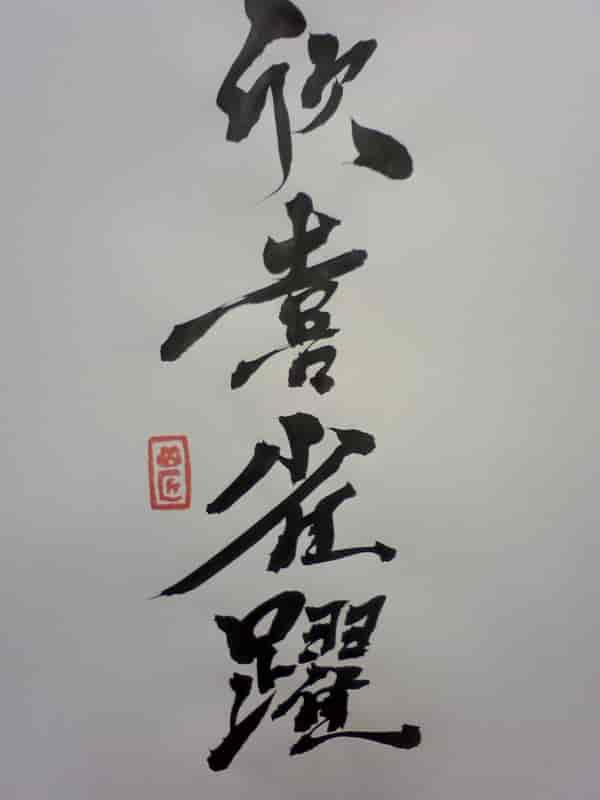 欣喜雀躍